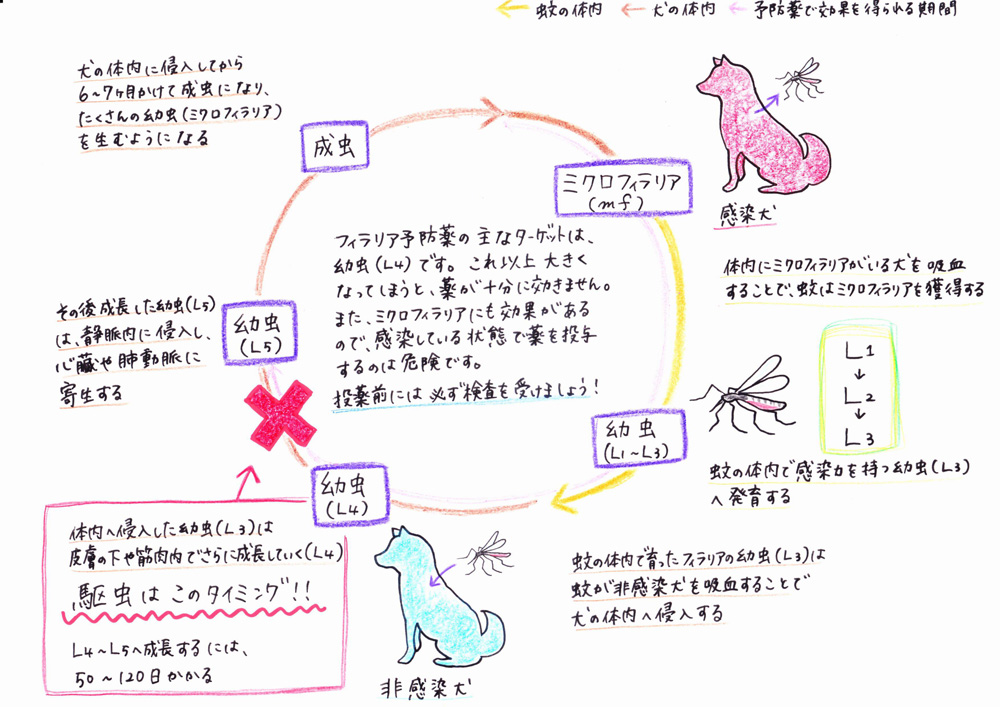 蚊の体内 犬の体内 予防薬で効果を得られる期間
犬の体内に侵入してから
6~7ヶ月かけて成虫になり、
たくさんの幼虫(ミクロフィラリア)
を生むようになる
成虫
ミクロフィラリア
(mf)
感染犬
体内にミクロフィラリアがいる犬を吸血
することで、蚊はミクロフィラリアを獲得する
フィラリア予防薬の主なターゲットは、
幼虫(L4)です。これ以上大きく
なってしまうと、薬が十分に効きません。
また、ミクロフィラリアにも効果がある
ので、感染している状態で薬を投与
するのは危険です。
投薬前には必ず検査を受けましょう!
その後成長した幼虫(L5)
は、静脈内に侵入し、
心臓や肺動脈に
寄生する
幼虫
(L5)
L1
↓
L2
↓
L3
幼虫
(L1~L3)
蚊の体内で感染力を持つ幼虫(L3)
へ発育する
幼虫
(L4)
体内へ侵入した幼虫(L3)は
皮膚の下や筋肉内でさらに成長していく(L4)
駆虫はこのタイミング!!
L4~L5へ成長するには、
50~120日かかる
蚊の体内で育ったフィラリアの幼虫(L3)は
蚊が非感染犬を吸血することで
犬の体内へ侵入する
非感染犬